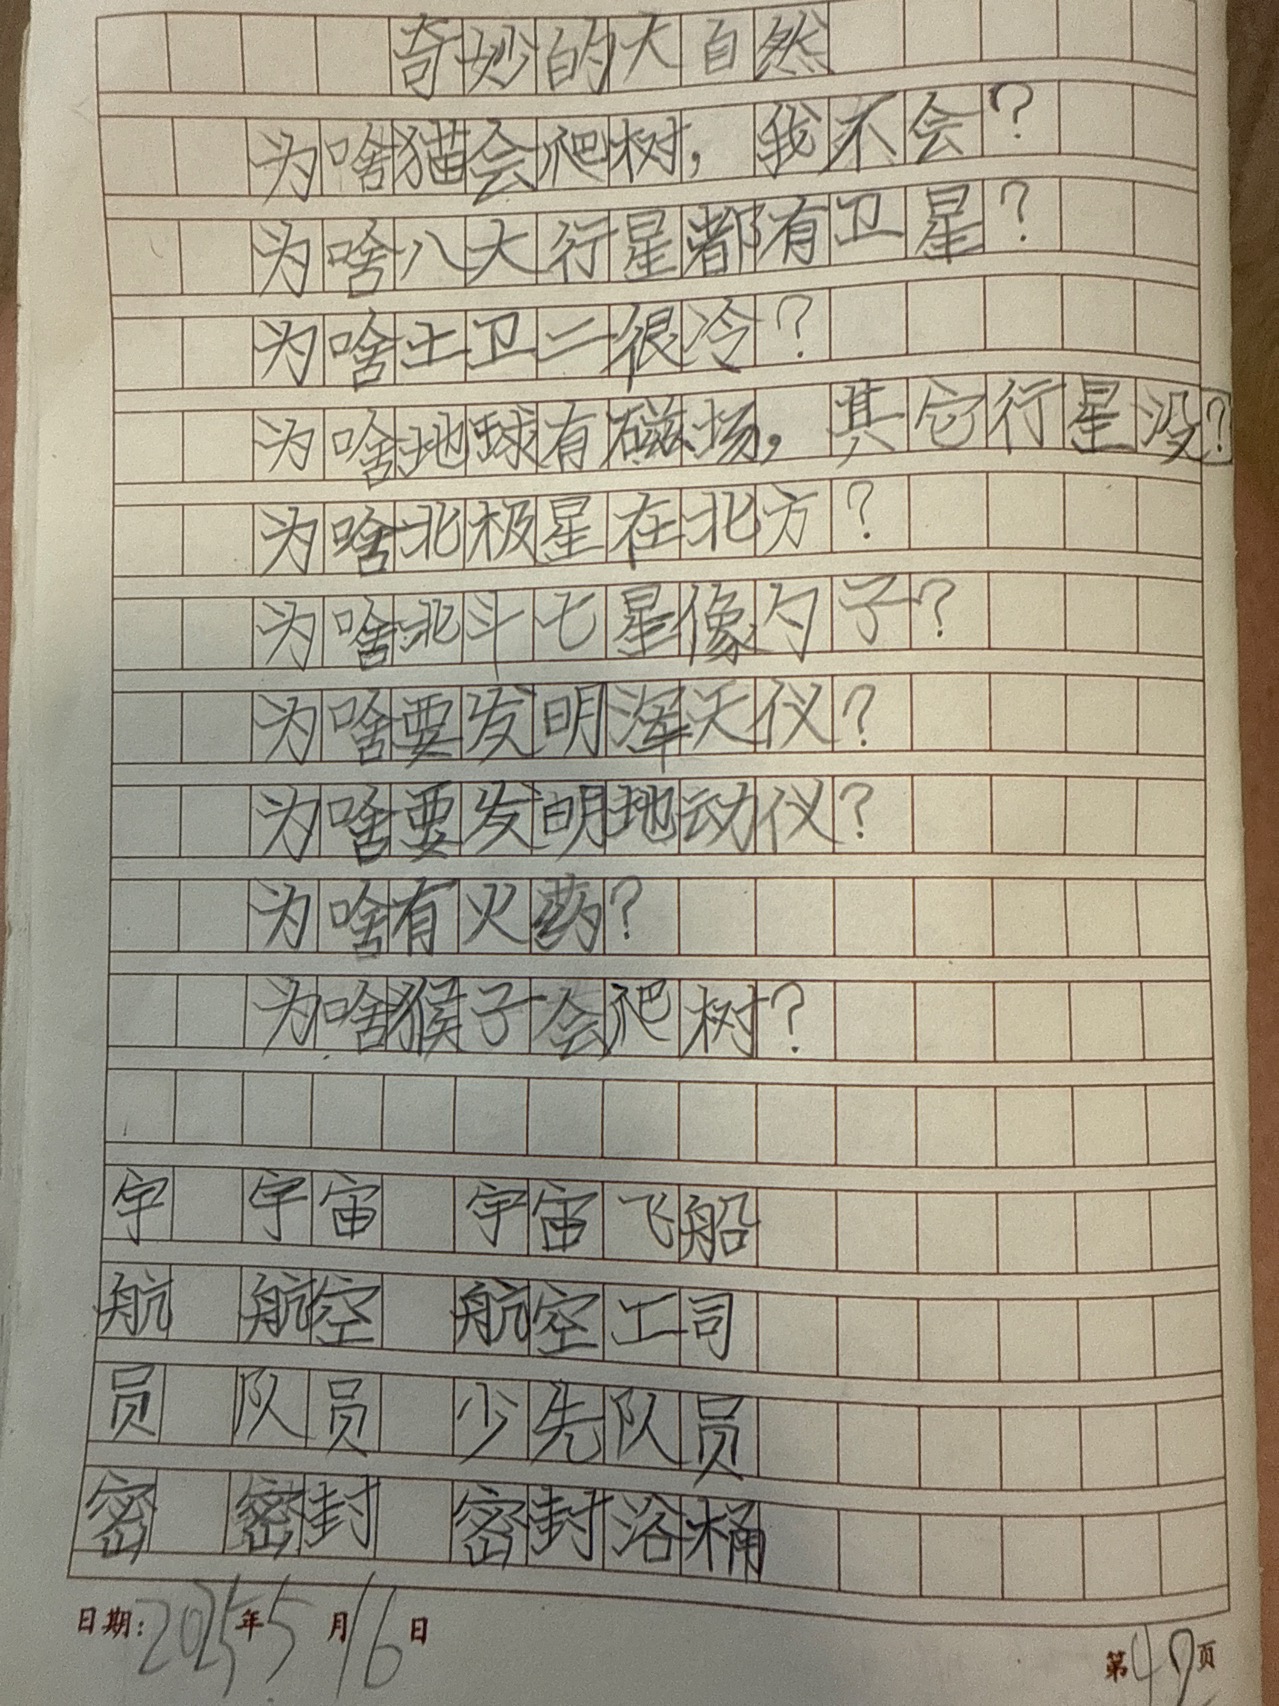 奇妙的大自然
为啥猫会爬树，我不会？
为啥八大行星都有卫星？
为啥土卫二很冷？
为啥地球有磁场，其它行星没？
为啥北极星在北方？
为啥北斗七星像勺子？
为啥要发明浑天仪？
为啥要发明地动仪？
为啥有火药？
为啥猴子会爬树？
宇 宇宙 宇宙飞船
航 航空 航空工司
员 队员 少先队员
密 密封 密封浴桶
日期：2025年5月16日
第47页